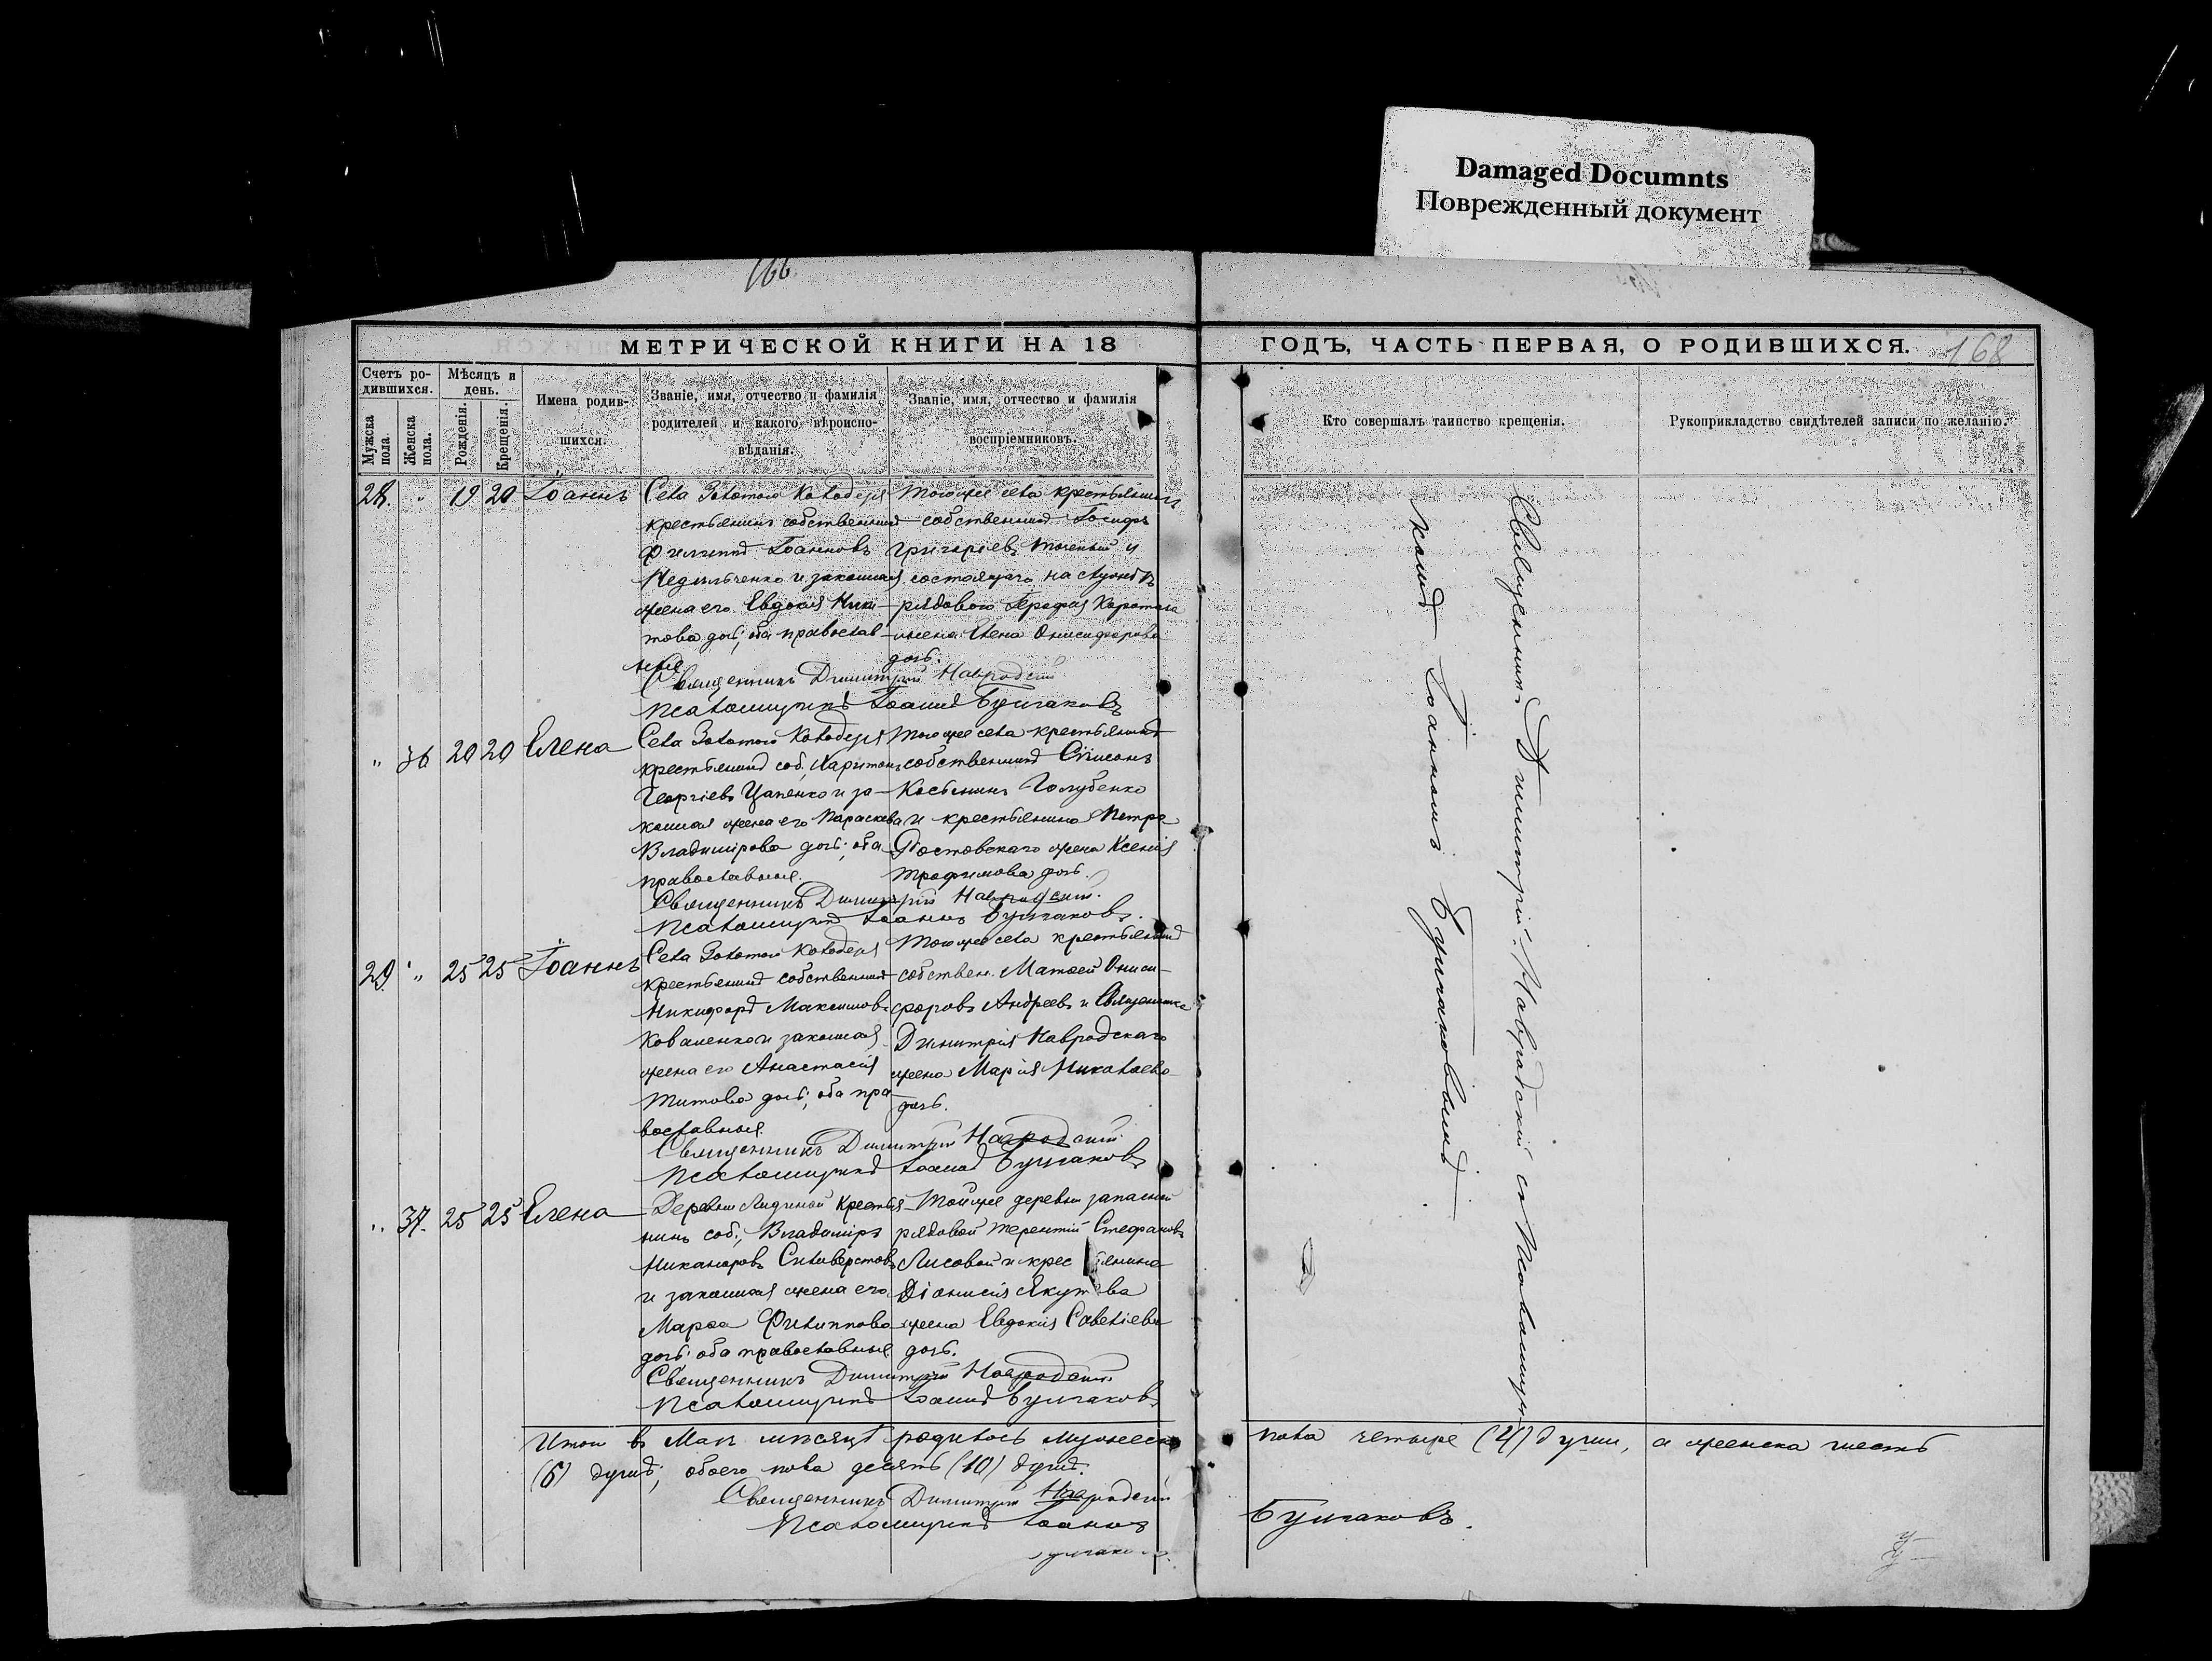 Damaged Documnts
Поврежденный документ
166
168
МЕТРИЧЕСКОЙ КНИГИ НА 18
ГОДЪ, ЧАСТЬ ПЕРВАЯ, О РОДИВШИХСЯ.
Счетъ ро-
дившихся.
Мужска пола.
Женска пола.
Мѣсяцъ и
день.
Рожденія.
Крещенія.
Имена родив-
шихся.
Званіе, имя, отчество и фамилія
родителей и какого вѣроиспо-
вѣданія.
Званіе, имя, отчество и фамилія
воспріемниковъ.
Кто совершалъ таинство крещенія.
Рукоприкладство свидѣтелей записи по желанію.
28. " 19 20 Іоаннъ
Села Золотого Колодезя
крестьянинъ собственникъ
Филиппъ Іоанновъ
Недильченко и законная
жена его Евдокія Ники-
това дочь; оба православ-
ные
Тогоже села крестьянинъ
собственникъ Іосифъ
Григоріевъ и
состоящаго на службѣ
рядового
жена Елена Онисифорова
дочь.
Священникъ Димитрій Навродскій
Псаломщикъ Іоаннъ Булгаковъ
" 36 20 20 Елена
Села Золотого Колодезя
крестьянинъ соб. Харитонъ
Георгіевъ Цапенко и за-
конная жена его Параскева
Владимірова дочь; оба
православные.
Тогоже села крестьянинъ
собственникъ Симеонъ
Косьминъ Голубенко
и крестьянина Петра
Ростовскаго жена Ксенія
Трофимова дочь.
Священникъ Димитрій Навродскій.
Псаломщикъ Іоаннъ Булгаковъ.
29. " 25 25 Іоаннъ
Села Золотого Колодезя
крестьянинъ собственникъ
Никифоръ Максимовъ
Коваленко и законная
жена его Анастасія
Титова дочь; оба пра-
вославные.
Тогоже села крестьянинъ
собствен. Матѳей Ониси-
форовъ Андреевъ и Священника
Димитрія Навродскаго
жена Марія Николаева
дочь.
Священникъ Димитрій Навродскій
Псаломщикъ Іоаннъ Булгаковъ
" 37. 25 25 Елена
Деревни крестья-
нинъ соб., Владиміръ
Никаноровъ Силиверстовъ
и законная жена его
Марѳа Филиппова
дочь; оба православные
Тойже деревни запасной
рядовой Терентій Стефановъ
Лисовой и крестьянина
Діонисія Якутова
жена Евдокія Савеліева
дочь.
Священникъ Димитрій Навродскій
Псаломщикъ Іоаннъ Булгаковъ
Священникъ Димитрій Навродскій съ Псаломщи-
комъ Іоанномъ Булгаковымъ
Итого въ Маѣ мѣсяцѣ родилось мужеска
пола четыре (4) души, а женска шесть
(6) душъ; обоего пола десять (10) душъ.
Священникъ Димитрій Навродскій
Псаломщикъ Іоаннъ
Булгаковъ.